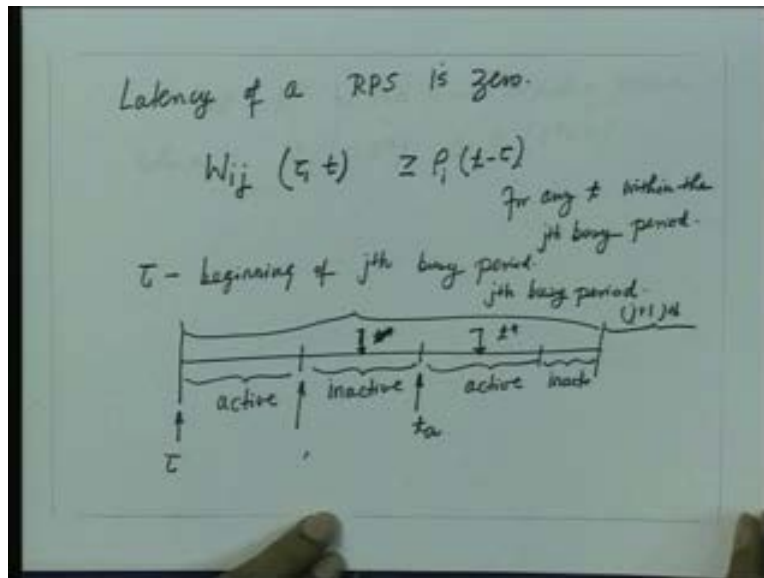 Latency of a RPS is zero.
Wij (τ, t) ≥ ρi (t-τ)
for any t within the
jth busy period.
τ - beginning of jth busy period.
jth busy period.
(j+1)th
t*
active inactive active inactiv
τ ta